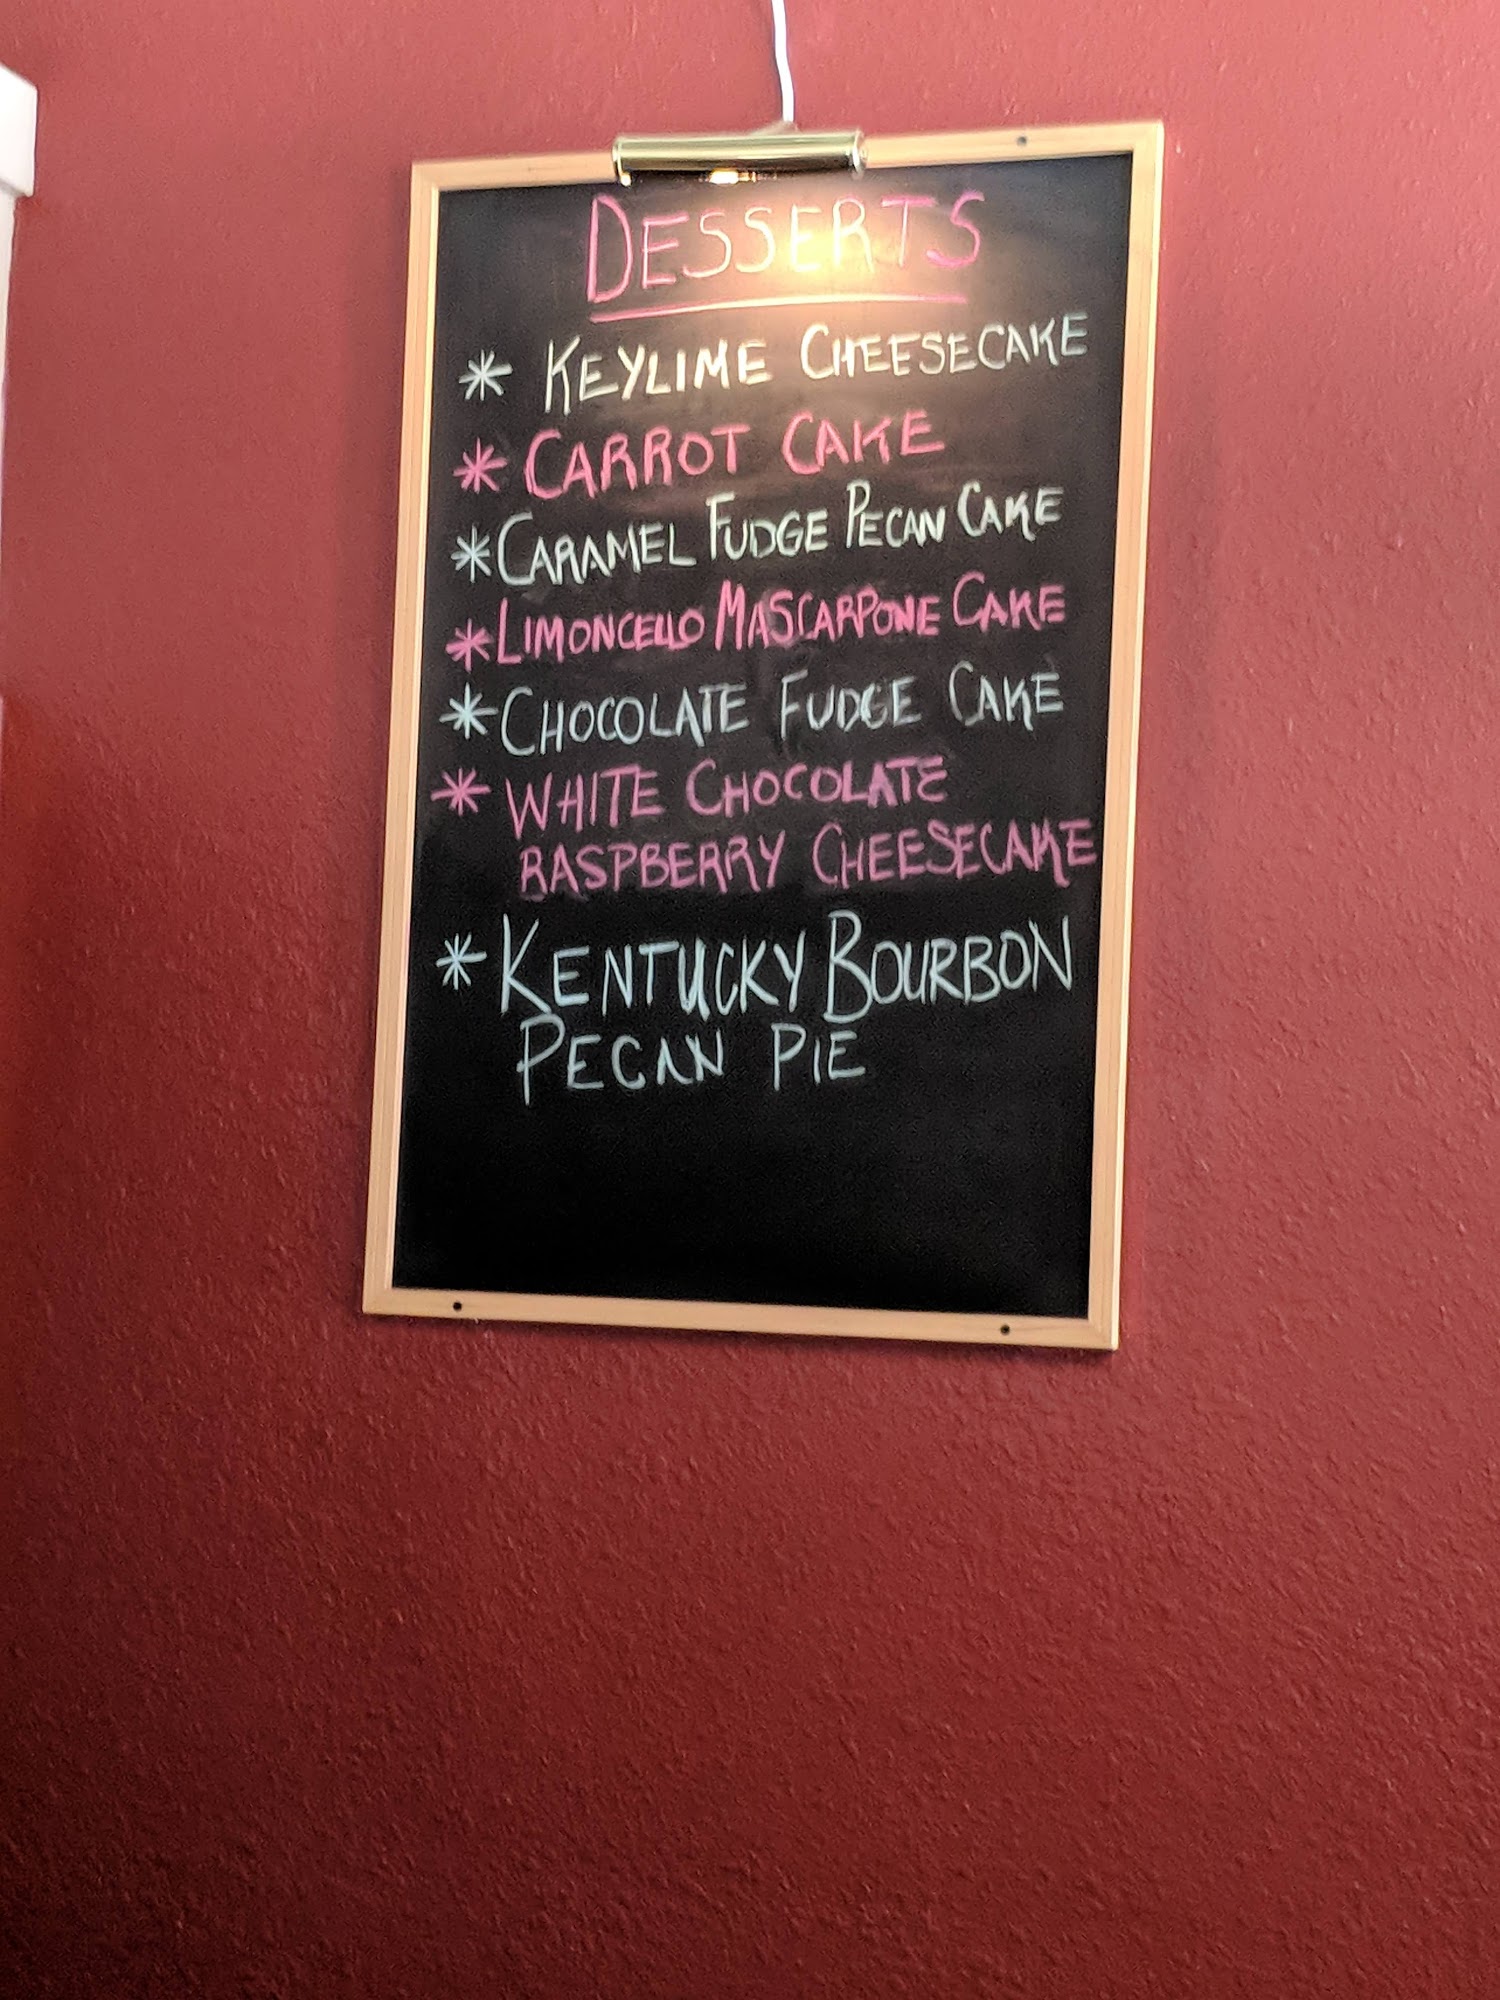 DESSERTS
* KEYLIME CHEESECAKE
* CARROT CAKE
* CARAMEL FUDGE PECAN CAKE
* LIMONCELLO MASCARPONE CAKE
* CHOCOLATE FUDGE CAKE
* WHITE CHOCOLATE
RASPBERRY CHEESECAKE
* KENTUCKY BOURBON
PECAN PIE